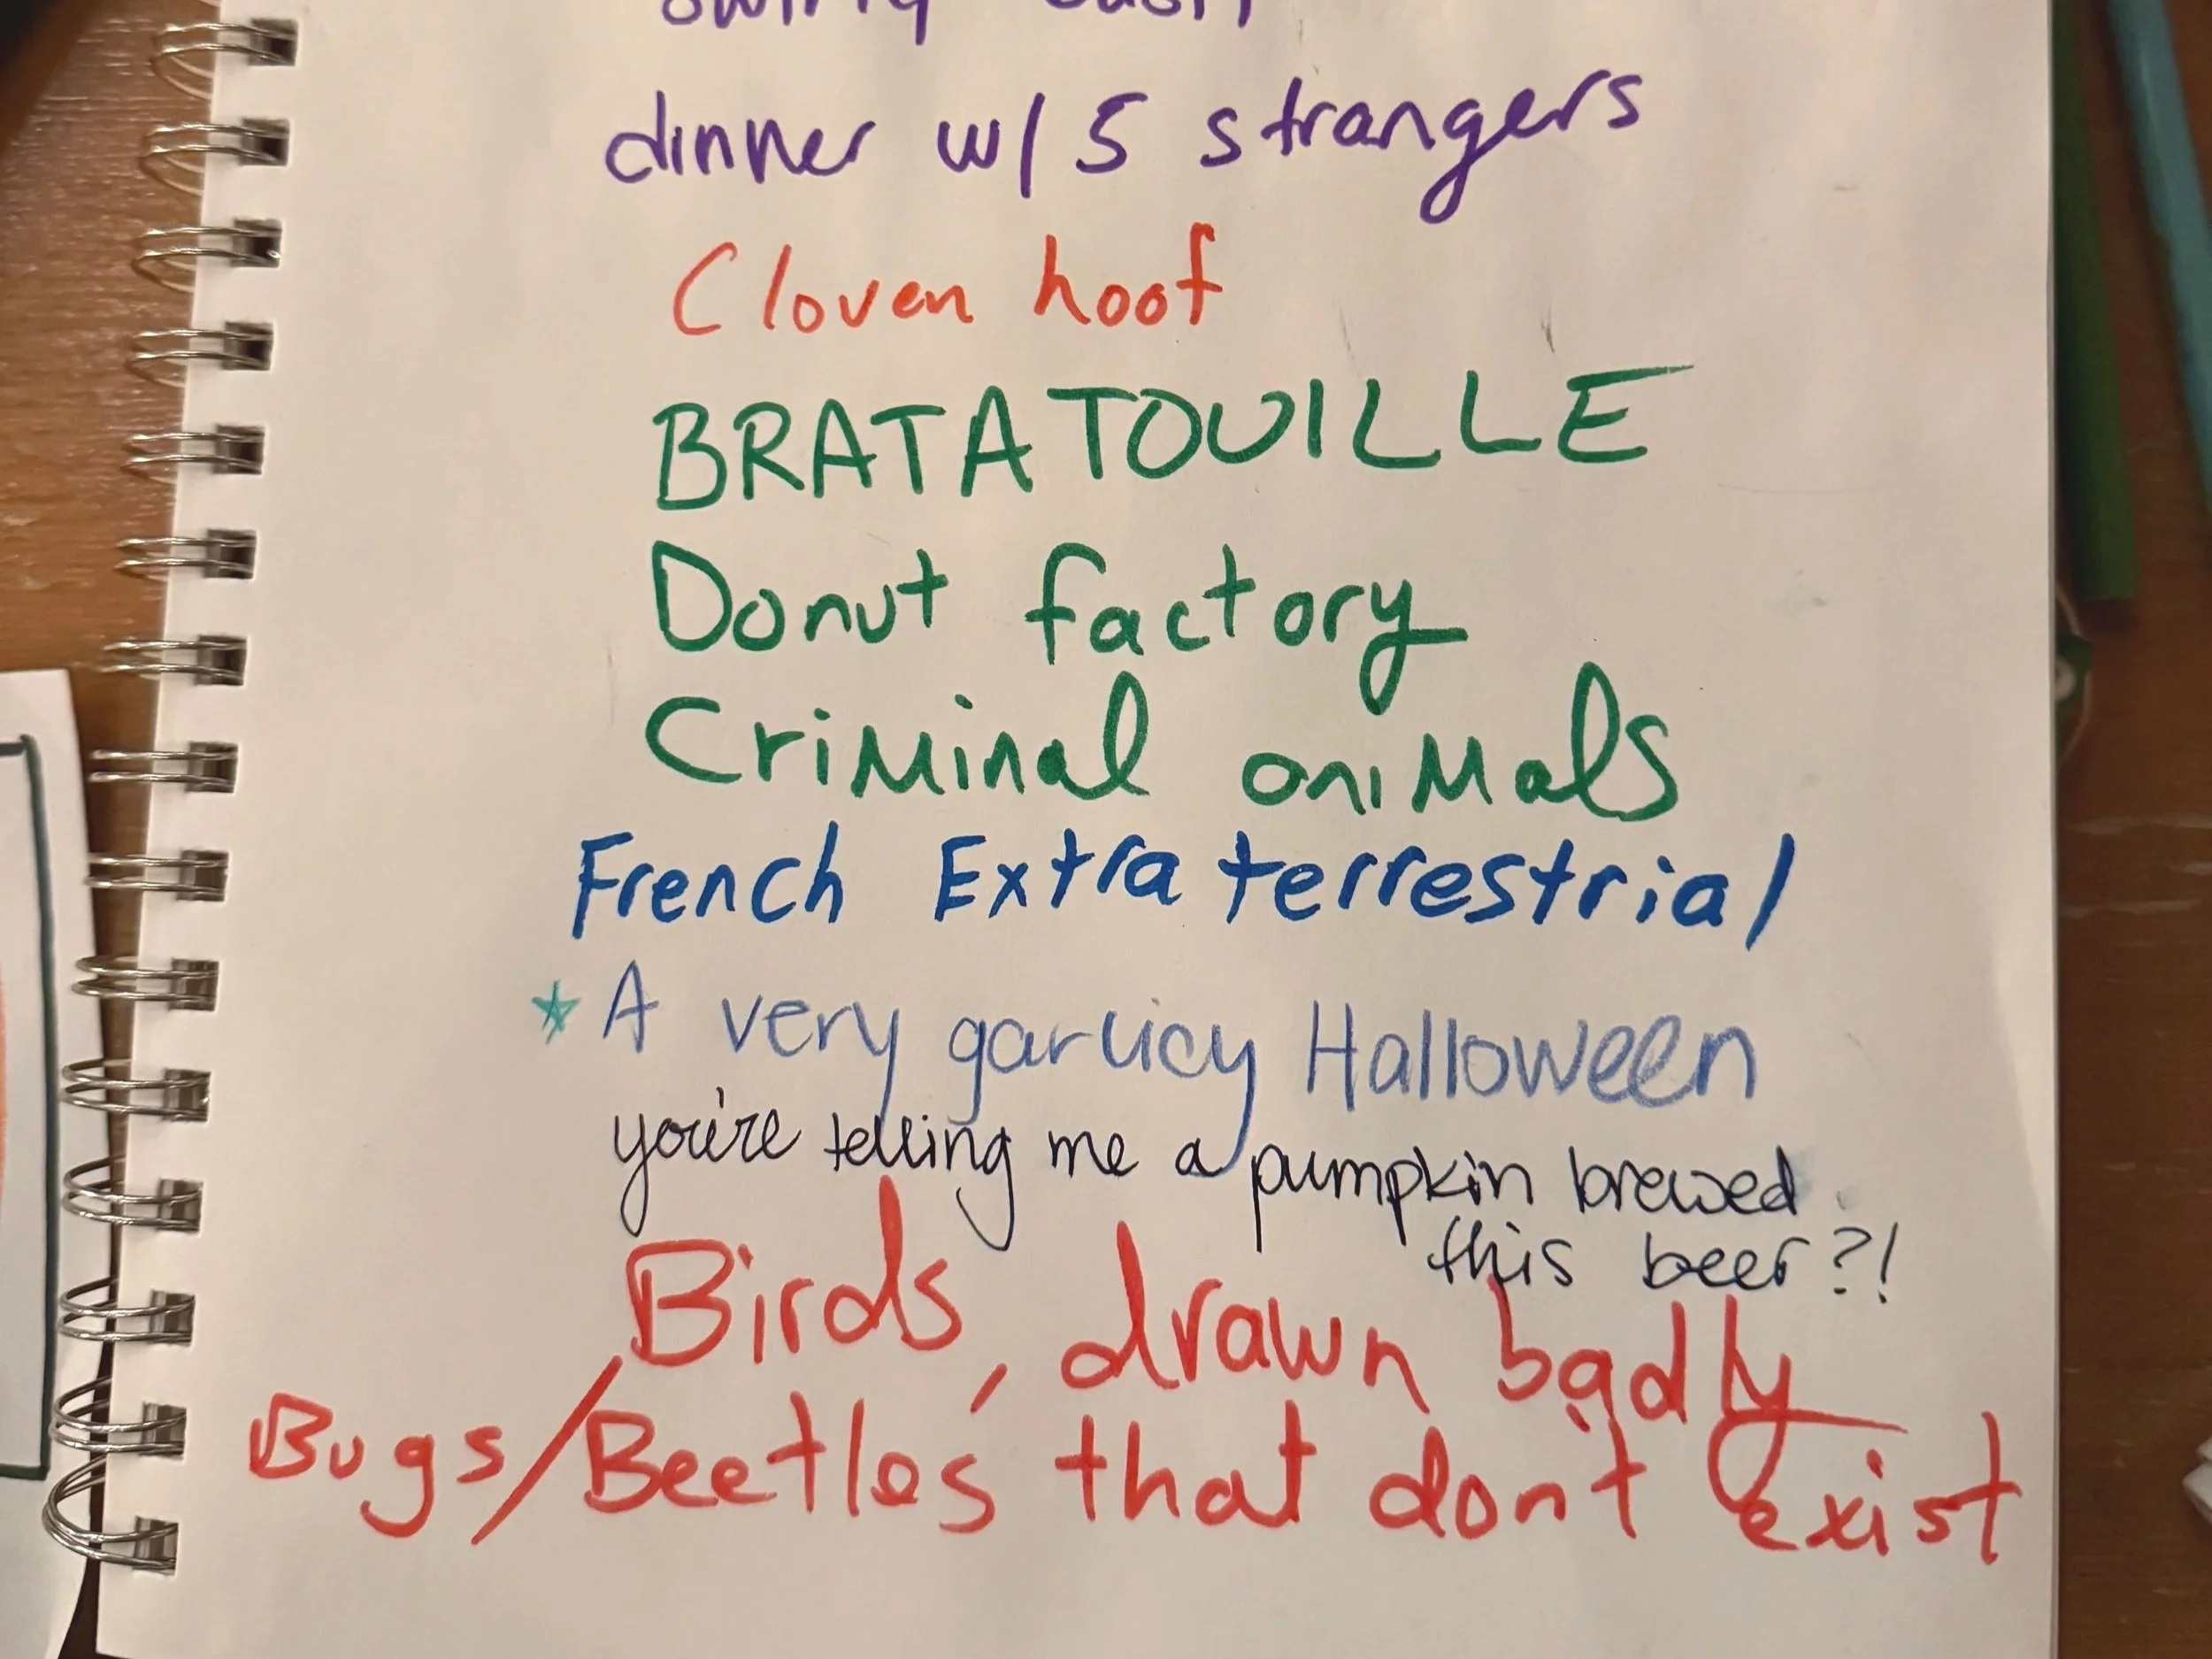 dinner w/ 5 strangers
Cloven hoof
BRATATOUILLE
Donut factory
Criminal animals
French Extraterrestrial
* A very garlicy Halloween
you're telling me a pumpkin brewed
this beer?!
Birds, drawn badly
Bugs/Beetles that don't exist